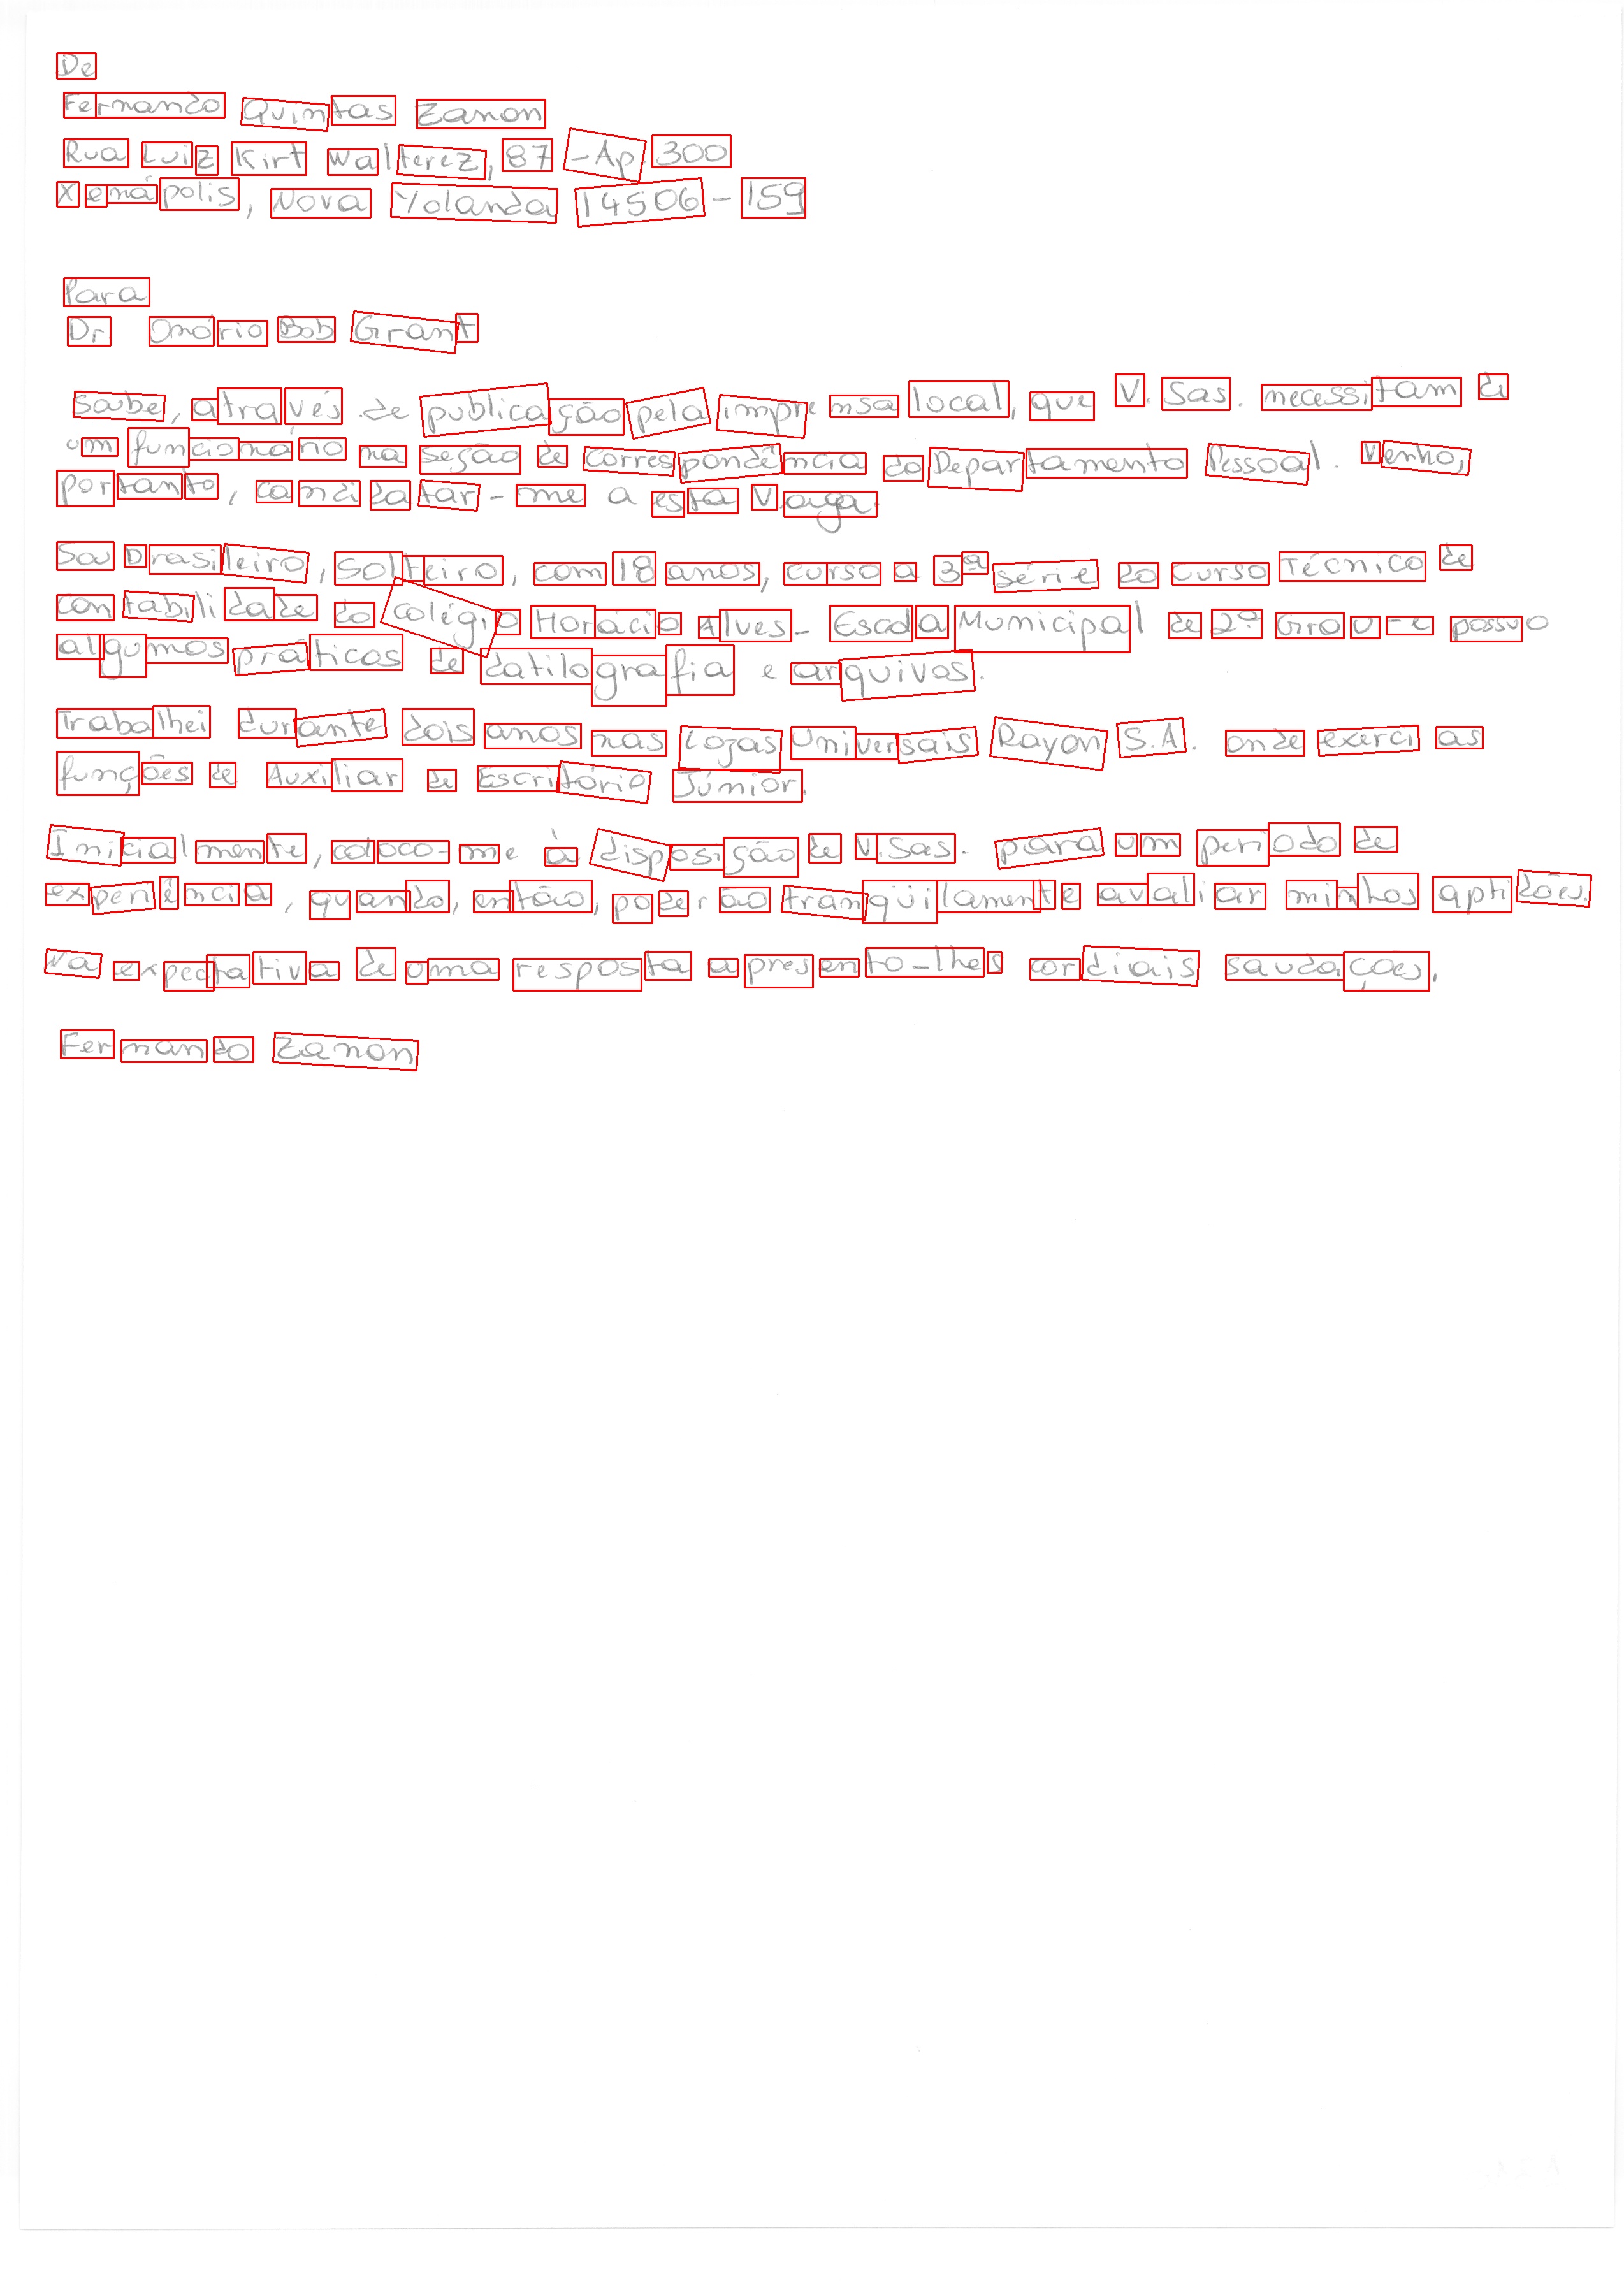 De
Fernando Quintas Zanon
Rua Luiz Kirt Walterez, 87 - Ap 300
Xemápolis, Nova Yolanda 14506-159
Para
Dr Omário Bob Grant
Soube, através de publicação pela imprensa local, que V. Sas. necessitam de
um funcionário na seção de correspondência do Departamento Pessoal. Venho,
portanto, candidatar-me a esta vaga.
Sou brasileiro, solteiro, com 18 anos, curso a 3ª série do curso Técnico de
contabilidade do colégio Horácio Alves - Escola Municipal de 2º Grau - e possuo
algumas práticas de datilografia e arquivos.
Trabalhei durante dois anos nas Lojas Universais Rayon S.A. onde exerci as
funções de Auxiliar de Escritório Júnior.
Inicialmente, coloco-me à disposição de V.Sas. para um período de
experiência, quando, então, poderão tranqüilamente avaliar minhas aptidões.
Na expectativa de uma resposta apresento-lhes cordiais saudações.
Fernando Zanon